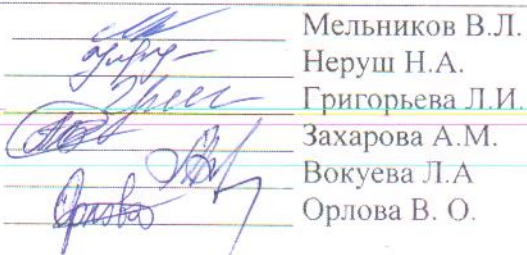 Мельников В.Л.
Неруш Н.А.
Григорьева Л.И.
Захарова А.М.
Вокуева Л.А
Орлова В. О.